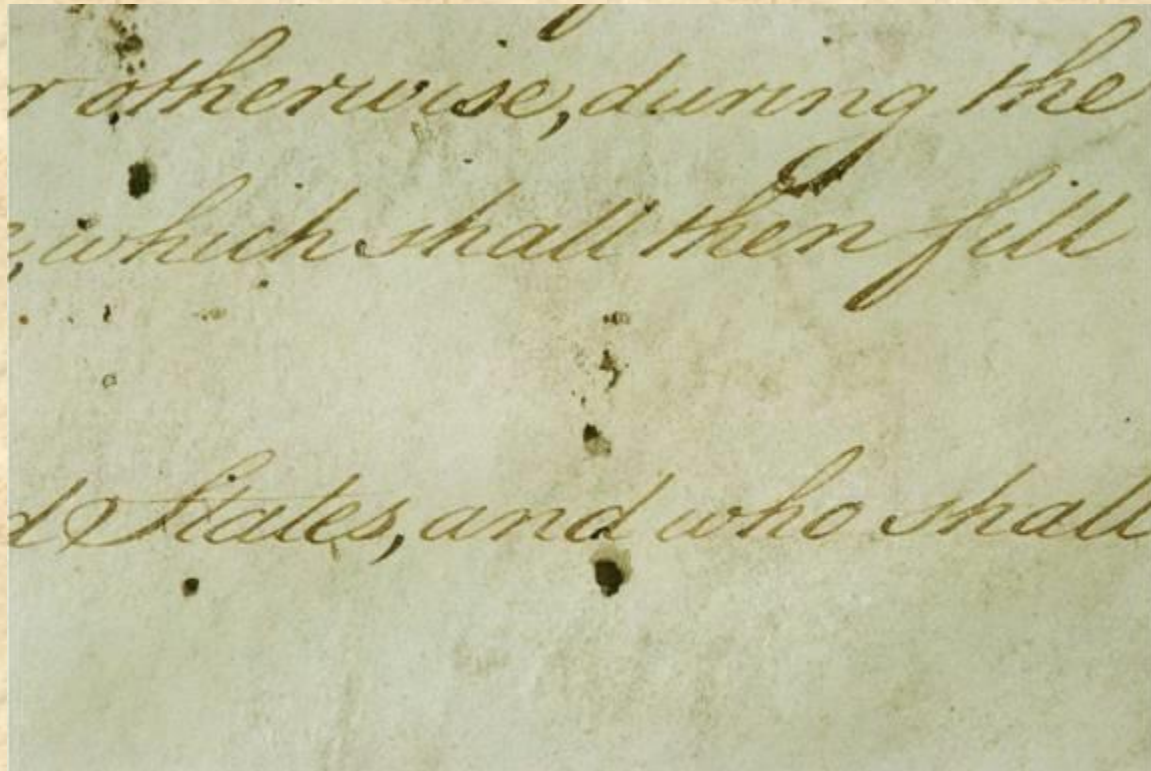 r otherwise, during the
, which shall then fill
d States, and who shall